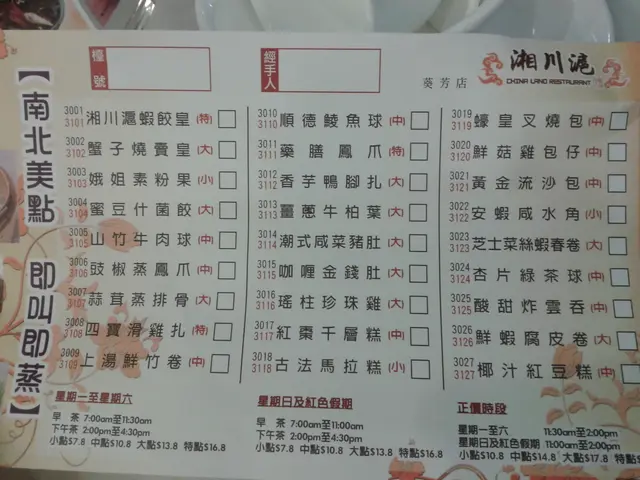 【南北美點 即叫即蒸】
檯號
經手人
葵芳店
湘川滬
CHINA LAND RESTAURANT
3001 3101 湘川滬蝦餃皇(特)
3002 3102 蟹子燒賣皇(大)
3003 3103 娥姐素粉果(小)
3004 3104 蜜豆什菌餃(大)
3005 3105 山竹牛肉球(中)
3006 3106 豉椒蒸鳳爪(中)
3007 3107 蒜茸蒸排骨(大)
3008 3108 四寶滑雞扎(特)
3009 3109 上湯鮮竹卷(中)
3010 3110 順德鯪魚球(中)
3011 3111 藥膳鳳爪(特)
3012 3112 香芋鴨腳扎(大)
3013 3113 薑蔥牛柏葉(大)
3014 3114 潮式咸菜豬肚(大)
3015 3115 咖喱金錢肚(大)
3016 3116 瑤柱珍珠雞(大)
3017 3117 紅棗千層糕(中)
3018 3118 古法馬拉糕(小)
3019 3119 蠔皇叉燒包(中)
3020 3120 鮮菇雞包仔(中)
3021 3121 黃金流沙包(中)
3022 3122 安蝦咸水角(小)
3023 3123 芝士菜絲蝦春卷(大)
3024 3124 杏片綠茶球(中)
3025 3125 酸甜炸雲吞(中)
3026 3126 鮮蝦腐皮卷(大)
3027 3127 椰汁紅豆糕(中)
星期一至星期六
早 茶 7:00am至11:30am
下午茶 2:00pm至4:30pm
小點$7.8 中點$10.8 大點$13.8 特點$16.8
星期日及紅色假期
早 茶 7:00am至11:00am
下午茶 2:00pm至4:30pm
小點$7.8 中點$10.8 大點$13.8 特點$16.8
正價時段
星期一至六 11:30am至2:00pm
星期日及紅色假期 11:00am至2:00pm
小點$10.8 中點$14.8 大點$17.8 特點$